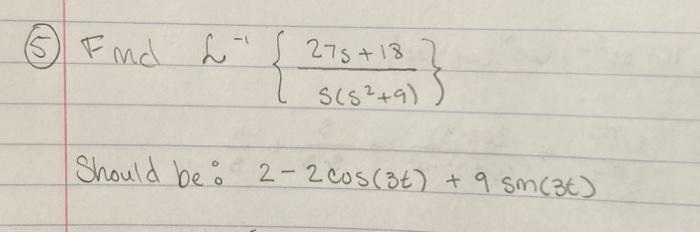 ⑤ Find ℒ⁻¹ { (27s + 18) / (s(s² + 9)) }
Should be: 2 - 2cos(3t) + 9 sin(3t)